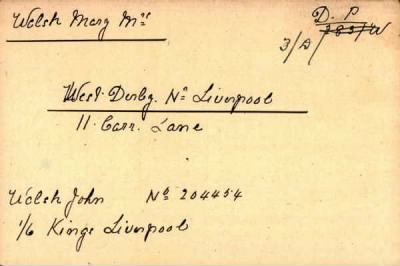 Welsh Mary Mrs
D. P
3/D/ 285/W
West Derby. Nr Liverpool
11. Carr. Lane
Welsh John No 204454
1/6 Kings Liverpool